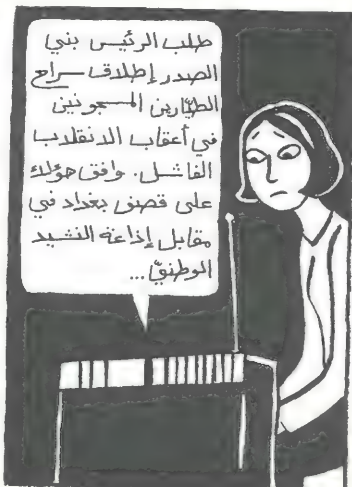 طلب الرئيس بني
الصدر إطلاق سراح
الطيّارين المسجونين
في أعقاب الانقلاب
الفاشل. وافق هؤلاء
على قصف بغداد في
مقابل إذاعة النشيد
الوطنيّ...